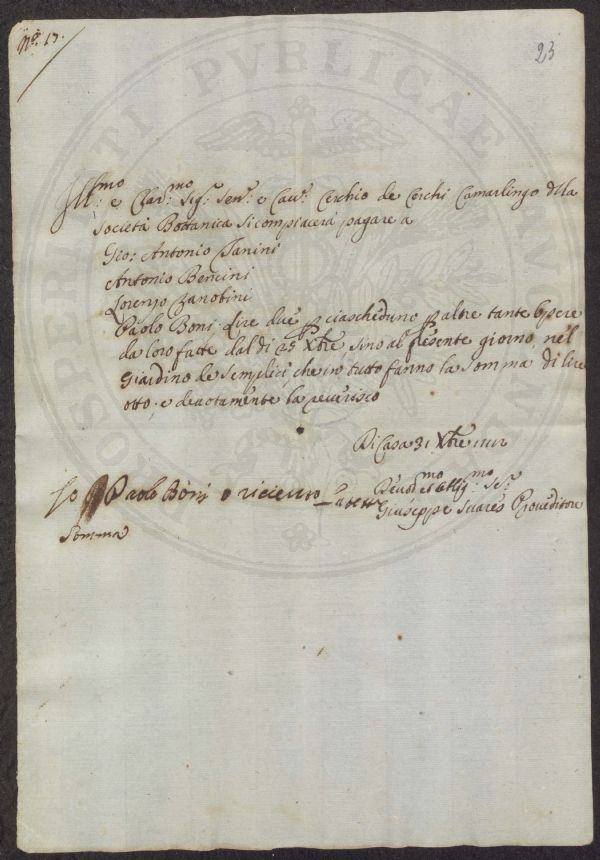 No: 13.
23
Ill:mo e Clar:mo Sig:r Sen:e e Cav:r Cerchio de Cerchi Camarlingo della
Società Bottanica si compiacerà pagare a
Gio: Antonio Nanini
Antonio Bencini
Lorenzo Zanobini
Paolo Boni. Lire due p ciascheduno p altre tante opere
da loro fatte dal dì 25 Xbre, sino al presente giorno, nel
Giardino de Semplici, che in tutto fanno la somma di lire
otto; e devotamente la reverisco
Di Casa 31 Xbre
Devot:mo et Obblig:mo Se:r
Giuseppe Suares Proveditore
Io Paolo Boni o riceuto la detta
Somma
PROSPERITATI PVBLICAE